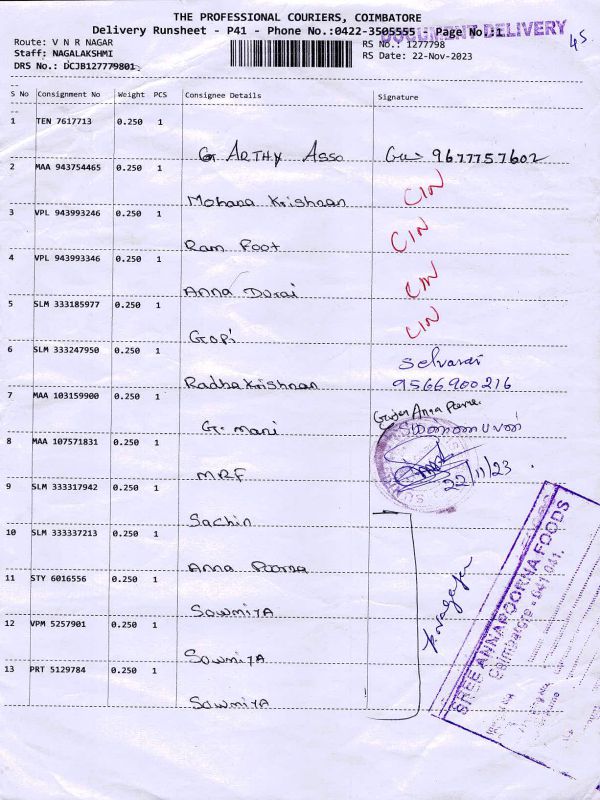 THE PROFESSIONAL COURIERS, COIMBATORE
Delivery Runsheet - P41 - Phone No.:0422-3505555 : Page No.:1
DOCUMENT DELIVERY
45
Route: V N R NAGAR
RS No.: 1277798
Staff: NAGALAKSHMI
RS Date: 22-Nov-2023
DRS No.: DCJB127779801
S No Consignment No Weight PCS Consignee Details Signature
1 TEN 7617713 0.250 1
G ARTHY Asso 9677757602
2 MAA 943754465 0.250 1
Mohana Krishnan CIN
3 VPL 943993246 0.250 1
Ram Foot CIN
4 VPL 943993346 0.250 1
Anna Durai CIN
5 SLM 333185977 0.250 1
Gopi CIN
6 SLM 333247950 0.250 1
Selvaraj
Radha Krishnan 9566900216
7 MAA 103159900 0.250 1
G. mani
8 MAA 107571831 0.250 1
MRF 22/11/23
9 SLM 333317942 0.250 1
Sachin
10 SLM 333337213 0.250 1
Anna Poorna
11 STY 6016556 0.250 1
Sowmiya
12 VPM 5257901 0.250 1
Sowmiya
13 PRT 5129784 0.250 1
Sowmiya
SREE ANNAPOORNA FOODS
Coimbatore - 641 041.